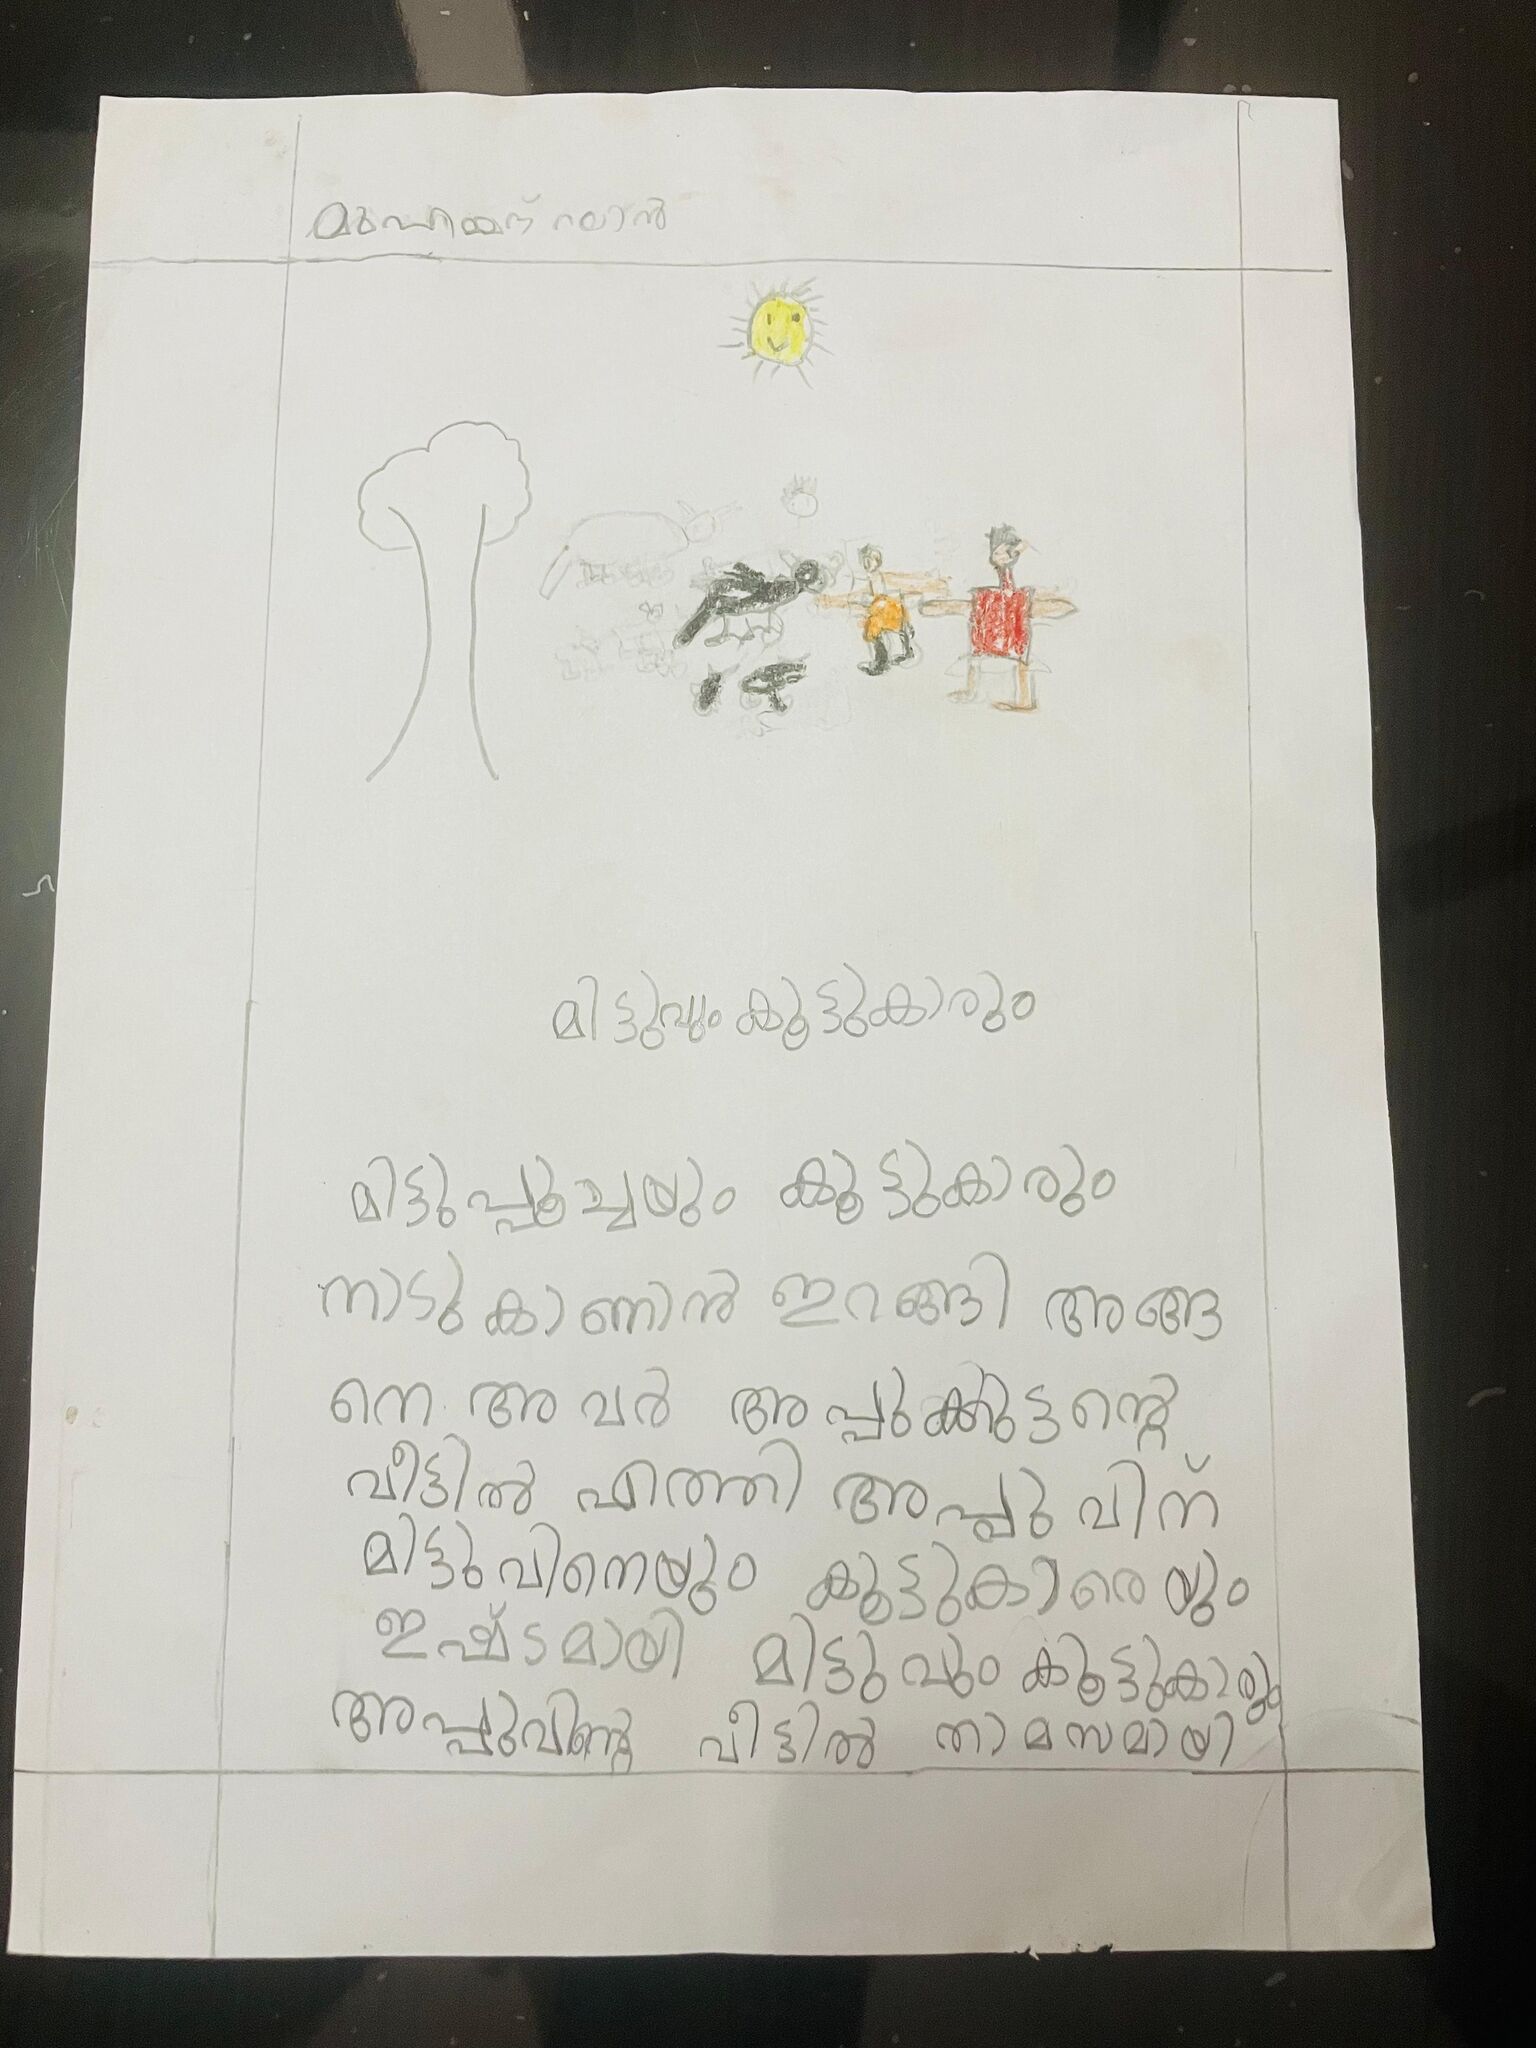 മുഹമ്മദ്
മിട്ടുവും കൂട്ടുകാരും
മിട്ടുപ്പൂച്ചയും കൂട്ടുകാരും
നാടുകാണാൻ ഇറങ്ങി അങ്ങ
നെ അവർ അപ്പുക്കുട്ടന്റെ
വീട്ടിൽ എത്തി അപ്പുവിന്
മിട്ടുവിനെയും കൂട്ടുകാരെയും
ഇഷ്ടമായി മിട്ടുവും കൂട്ടുകാരും
അപ്പുവിന്റെ വീട്ടിൽ താമസമായി